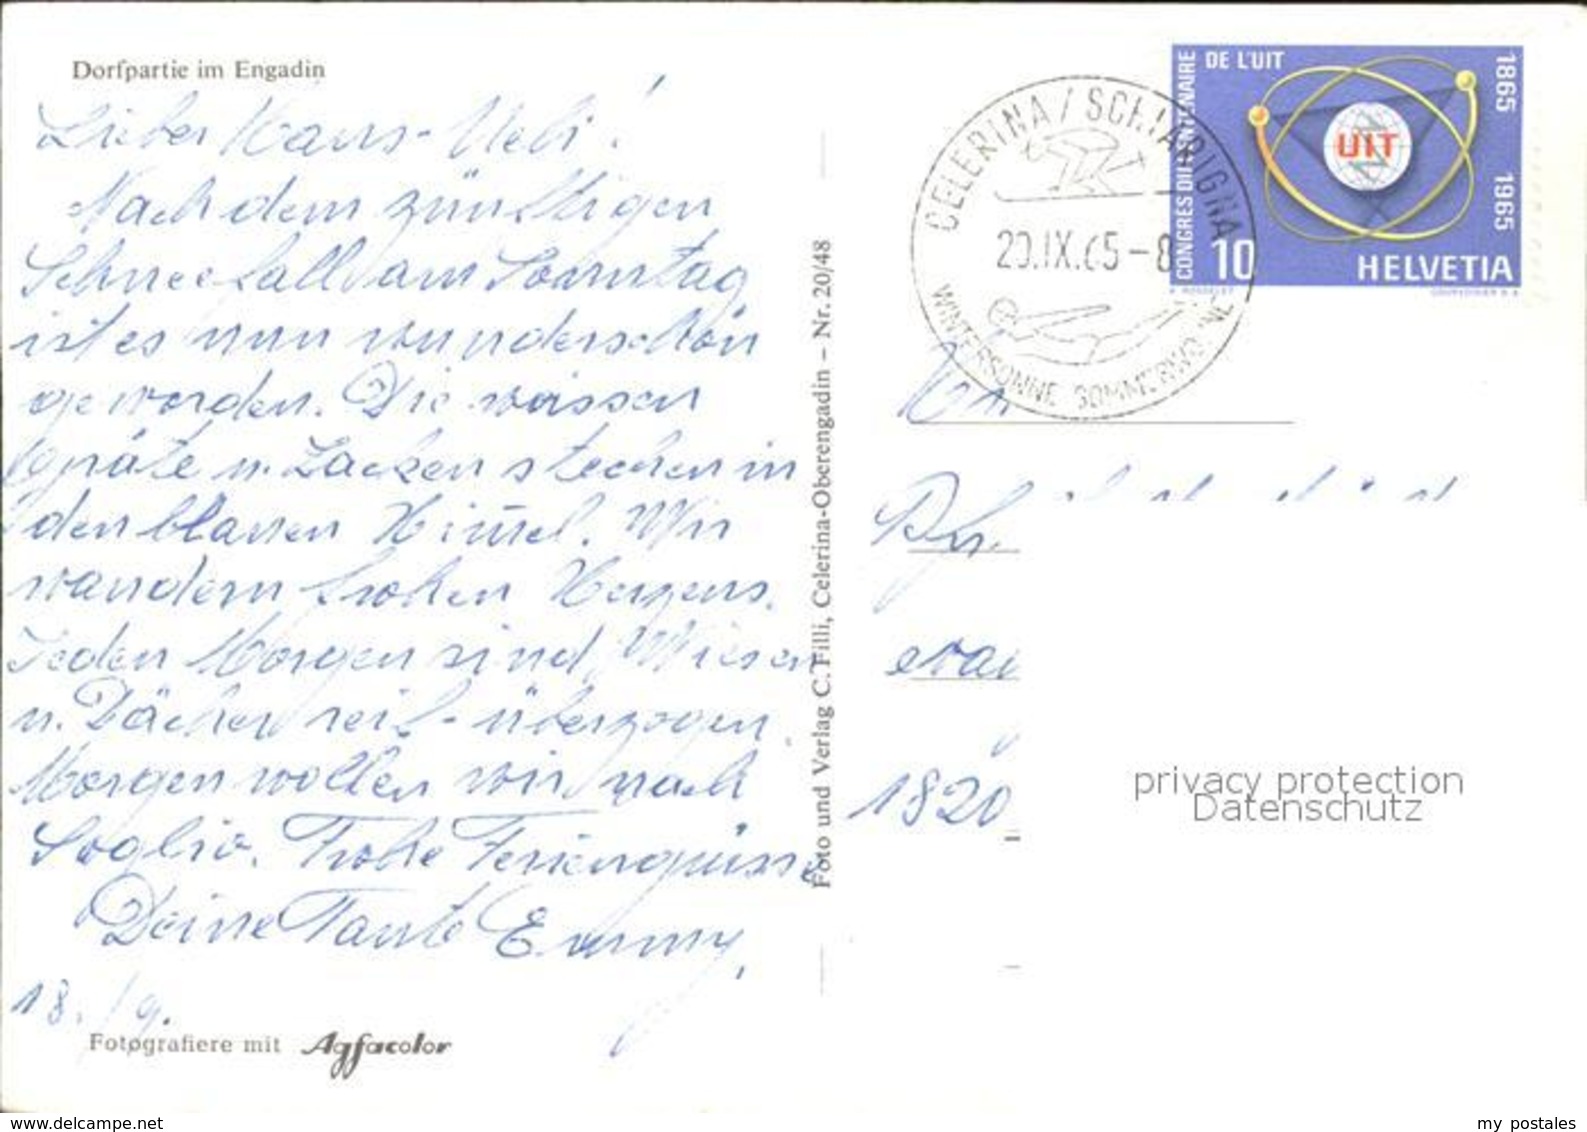 Dorfpartie im Engadin
Lieber Hans-Ueli!
Nach dem zünftigen
Schneefall am Sonntag
ist es nun wunderschön
geworden. Die weissen
Gräte u. Zacken stechen in
den blauen Himmel. Wir
wandern frohen Herzens.
Jeden Morgen sind Wiesen
u. Dächer reif-überzogen.
Morgen wollen wir nach
Soglio. Frohe Feriengrüsse
Deine Tante Emmy,
18./9.
Fotografiere mit Agfacolor
Foto und Verlag C. Filli, Celerina-Oberengadin – Nr. 20/48
CELERINA/SCHLARIGNA
20.IX.65-8
WINTERSONNE SOMMERWONNE
CONGRÈS DU CENTENAIRE
DE L'UIT
1865 1965
UIT
10
HELVETIA
1820
privacy protection
Datenschutz
www.delcampe.net
my postales